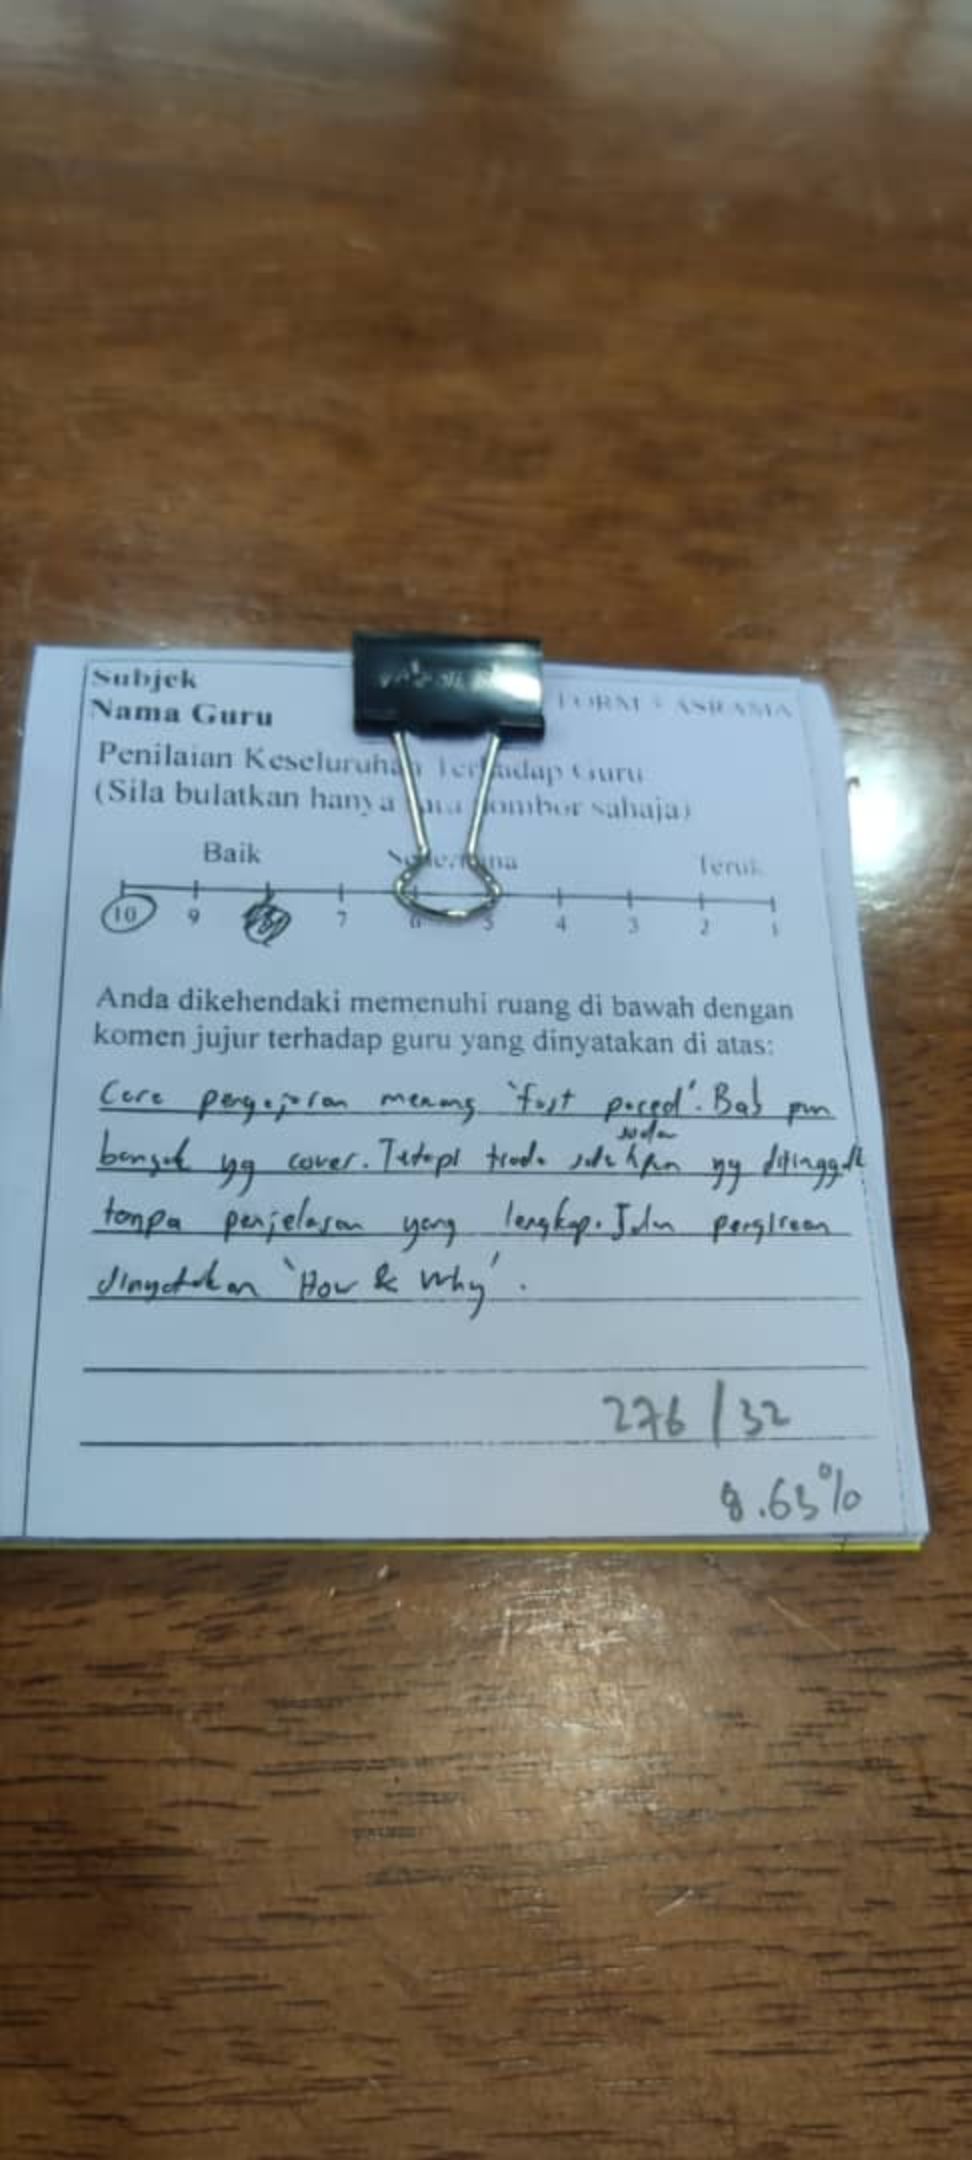 Subjek
Nama Guru
FORM 5 ASRAMA
Penilaian Keseluruhan Terhadap Guru
(Sila bulatkan hanya satu nombor sahaja)
Baik Sederhana Teruk
10 9 8 7 6 5 4 3 2 1
Anda dikehendaki memenuhi ruang di bawah dengan
komen jujur terhadap guru yang dinyatakan di atas:
Cara pengajaran memang 'fast paced'. Bab pun
banyak yg cover. Tetapi tiada satu pun yg ditinggalk
tanpa penjelasan yang lengkap. Jalan pengiraan
dinyatakan 'How & Why'.
276 / 32
8.63%